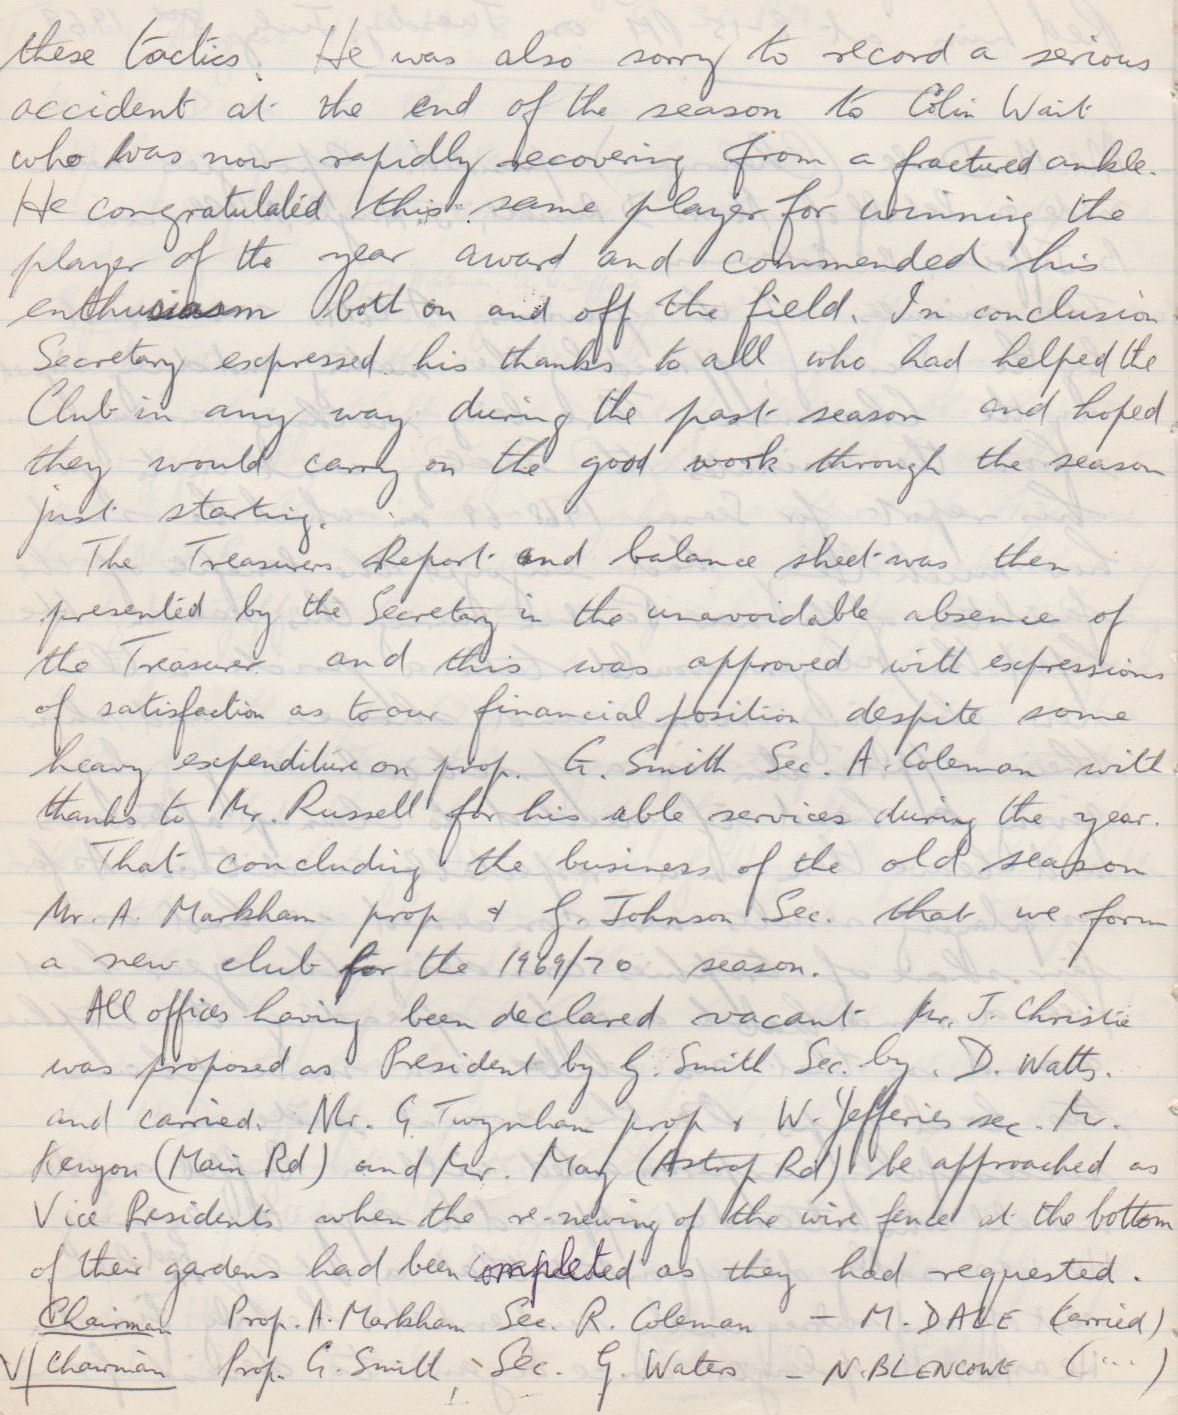 these tactics. He was also sorry to record a serious
accident at the end of the season to Colin Wait
who was now rapidly recovering from a fractured ankle.
He congratulated this same player for winning the
player of the year award and commended his
enthusiasm both on and off the field. In conclusion
Secretary expressed his thanks to all who had helped the
Club in any way during the past season and hoped
they would carry on the good work through the season
just starting.
The Treasurers Report and balance sheet was then
presented by the Secretary in the unavoidable absence of
the Treasurer and this was approved with expressions
of satisfaction as to our financial position despite some
heavy expenditure on prop. G. Smith Sec. A. Coleman with
thanks to Mr. Russell for his able services during the year.
That concluding the business of the old season
Mr. A. Markham prop & G. Johnson Sec. that we form
a new club for the 1969/70 season.
All offices having been declared vacant Mr. J. Christie
was proposed as President by G. Smith Sec. by. D. Watts.
and carried. Mr. G Twynham prop & W. Jefferies sec. Mr.
Kenyon (Main Rd) and Mr. May (Astrop Rd) be approached as
Vice Presidents when the re-newing of the wire fence at the bottom
of their gardens had been completed as they had requested.
Chairman Prop. A. Markham Sec. R. Coleman – M. DALE (carried)
V/Chairman Prop. G. Smith, Sec. G. Waters – N. BLENCOWE (...)